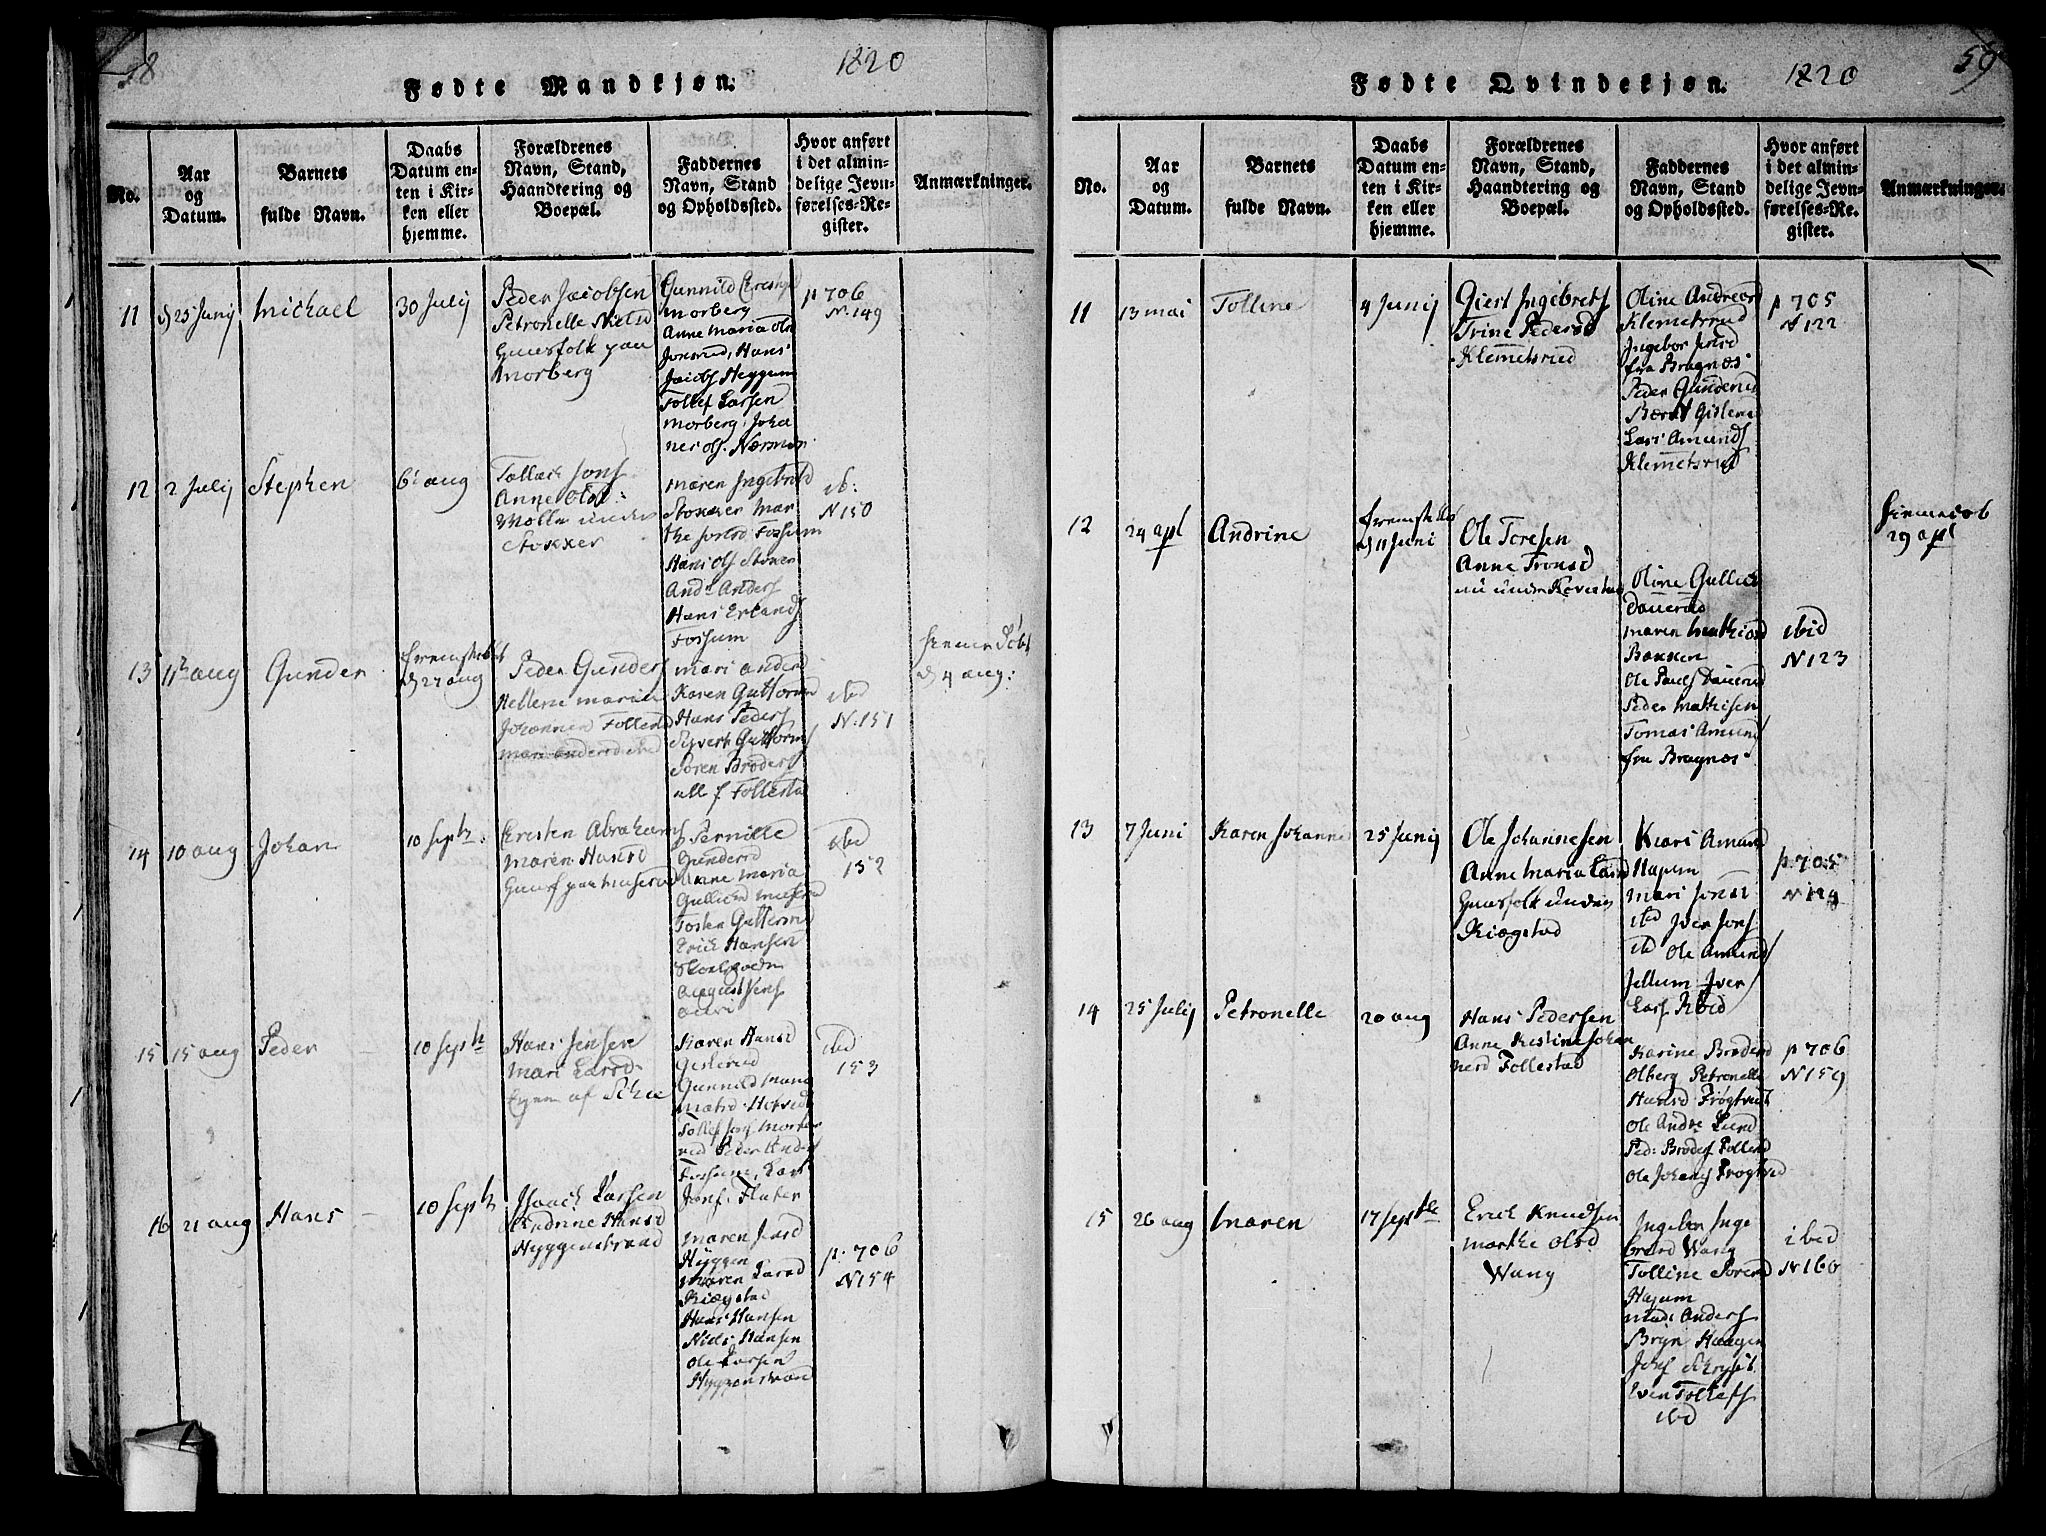 58
1820
Fødte Mandkjøn.
No.
Aar og Datum.
Barnets fulde Navn.
Daabs Datum enten i Kirken eller hjemme.
Forældrenes Navn, Stand, Haandtering og Boepæl.
Faddernes Navn, Stand og Opholdssted.
Hvor anført i det almindelige Jevnførelses-Register.
Anmærkninger.
11
d 25 Junij
Michael
30 Julij
Peder Jacobsen
Petronelle Nielsd
Gaardfolk paa
Morberg
Gunnild
Morberg
Anne Maria Ols
Jonsrud, Hans
Jacobs Heggum
Tollef Larsen
Morberg, Joha
nes Ols. Nærnes
p 706
N. 149
12
2 Julij
Stephen
6 aug
Tollach Jons
Anne Olsd:
Mølle under
Stokker
Maren Ingebretsd
Stokker Mar
the Jonsd Fossum
Hans Ols Stoker
And: Anders
Hans Erlands
Fossum
ib:
N 150
13
11 aug
Gunder
fremstillet
d 27 aug
Peder Gunders
Hellene Maria
Johannesd Follestad
Mari andersd
Karen Guttormsd
Hans Peders
Syvert Guttorms
Søren Brøders
all f Follestad
ibd
N. 151
hiemmedøbt
d 4 aug:
14
10 aug
Johan
10 Septr:
Christen Abrahams
Maren Hansd
Pernille
Gundersd
Anne Maria
Gullichsd
Tosten Guttormsd
Erich Hansen
August Jens
ibid
152
15
15 aug
Peder
10 septr
Hans Jensen
Mari Larsd
Karen Hansd
Gislerud
Gunnild
Tollef Jons
Peder Anders
Fossum, Lars
Jons. Flater
ibid
153
16
21 aug
Hans
10 septr
Isaach Larsen
Andrine Hansd
Hyggenstrand
Maren Jensd
Hyggen
Maren Larsd
Kiægstad
Hans Hansen
Niels Hansen
Ole Larsen
Hyggenstrand
p. 706
N 154
59
1820
Fødte Qvindekjøn.
No.
Aar og Datum.
Barnets fulde Navn.
Daabs Datum enten i Kirken eller hjemme.
Forældrenes Navn, Stand, Haandtering og Boepæl.
Faddernes Navn, Stand og Opholdssted.
Hvor anført i det almindelige Jevnførelses-Register.
Anmærkninger.
11
13 mai
Tolline
4 Junij
Giert Ingebrets
Trine Pedersd
Klemetsrud
Oline Andreasd
Klemetsrud
Ingebor Jensd
fra Bragnes
Peder Gundersen
Bernt Gislerud
Lars Amunds
Klemetsrud
p 705
N 122
12
24 apl
Andrine
fremstillet
d 11 Juni
Ole Toresen
Anne Tronsd
nu under
Oline Gullich
Dauerud
Maren Mathisd
Bakken
Ole Pauls Dauerud
Peder Mathisen
Tomas Amund
fra Bragnes
ibid
N 123
hiemmedøb
29 apl
13
7 Juni
Karen Johanne
25 Junij
Ole Johannesen
Anne Maria Larsd
Gaardfolk under
Kiægstad
Mari Amunds
Hajum
Mari Jonsd
ibd Iver Jons
ib Ole Amunds
Jellum Iver
Lars Røed
p. 705
N 124
14
25 Julij
Petronelle
20 aug
Hans Pedersen
Anne Kestine Johan
nesd Follestad
Karine Brødersd
Olberg Petronelle
Hansd Frøgtvedt
Ole Andr: Lund
Ped: Brøders Follestad
Ole Johans Frogtved
p 706
N 159
15
26 aug
Maren
17 septbr
Erich Knudsen
Marthe Olsd
Wang
Ingebor Inge
bretsd Wang
Tolline Sørensd
Hajum
Mads Anders
Bryn Haagen
Johs
Even Tollefs
ibd
ibid
N 160